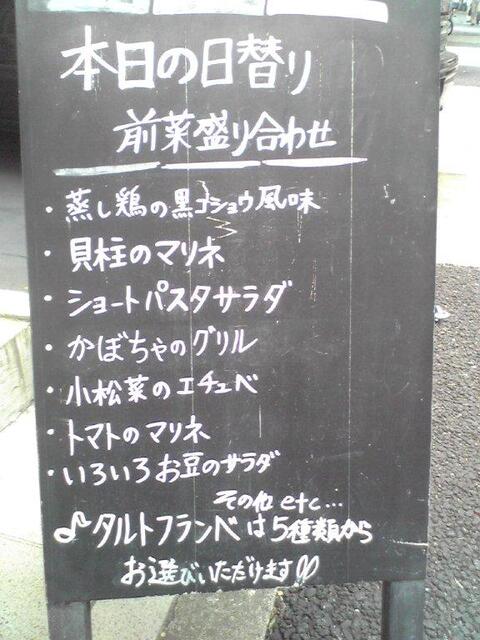 本日の日替り
前菜盛り合わせ
・蒸し鶏の黒コショウ風味
・貝柱のマリネ
・ショートパスタサラダ
・かぼちゃのグリル
・小松菜のエチュベ
・トマトのマリネ
・いろいろお豆のサラダ
その他etc...
♪タルトフランベは5種類から
お選びいただけます♡